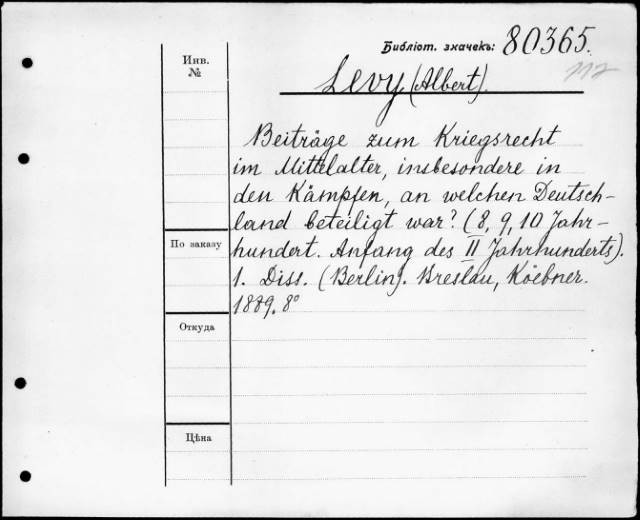 Библіот. значекъ: 80365.
112
Инв.
№
Levy (Albert).
Beiträge zum Kriegsrecht
im Mittelalter, insbesondere in
den Kämpfen, an welchen Deutsch-
land beteiligt war? (8, 9, 10 Jahr-
hundert. Anfang des II Jahrhunderts).
1. Diss. (Berlin). Breslau, Köebner.
1889. 8°
По заказу
Откуда
Цѣна